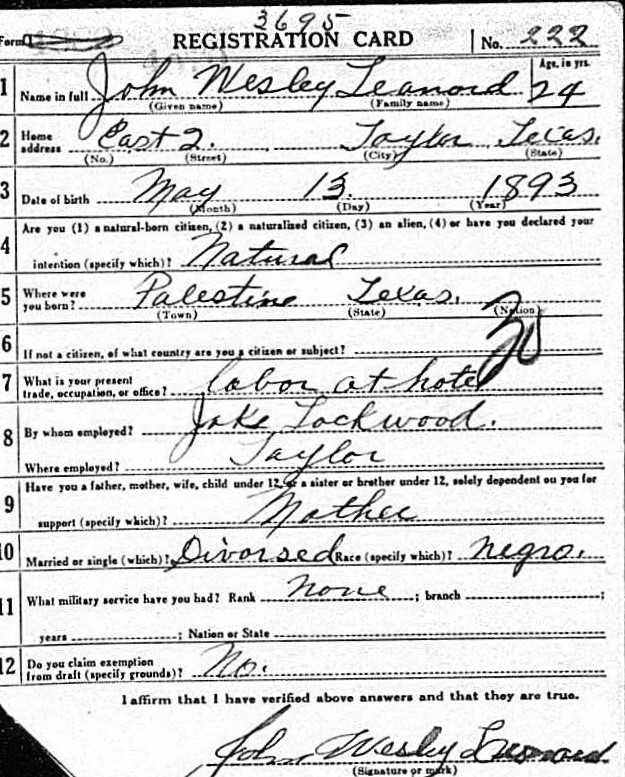 3695
Form REGISTRATION CARD No. 222
1 Name in full John Wesley Leanord Age, in yrs. 24
(Given name) (Family name)
2 Home address East 2. Taylor Texas.
(No.) (Street) (City) (State)
3 Date of birth May 13 1893
(Month) (Day) (Year)
Are you (1) a natural-born citizen, (2) a naturalized citizen, (3) an alien, (4) or have you declared your
4 intention (specify which)? Natural
5 Where were you born? Palestine Texas.
(Town) (State) (Nation)
6 If not a citizen, of what country are you a citizen or subject?
7 What is your present trade, occupation, or office? labor at hotel
8 By whom employed? Jake Lockwood.
Where employed? Taylor
9 Have you a father, mother, wife, child under 12, or a sister or brother under 12, solely dependent on you for
support (specify which)? Mother
10 Married or single (which)? Divorsed Race (specify which)? negro.
11 What military service have you had? Rank none ; branch ;
years ; Nation or State
12 Do you claim exemption from draft (specify grounds)? No.
I affirm that I have verified above answers and that they are true.
John Wesley Leanord
(Signature or mark)